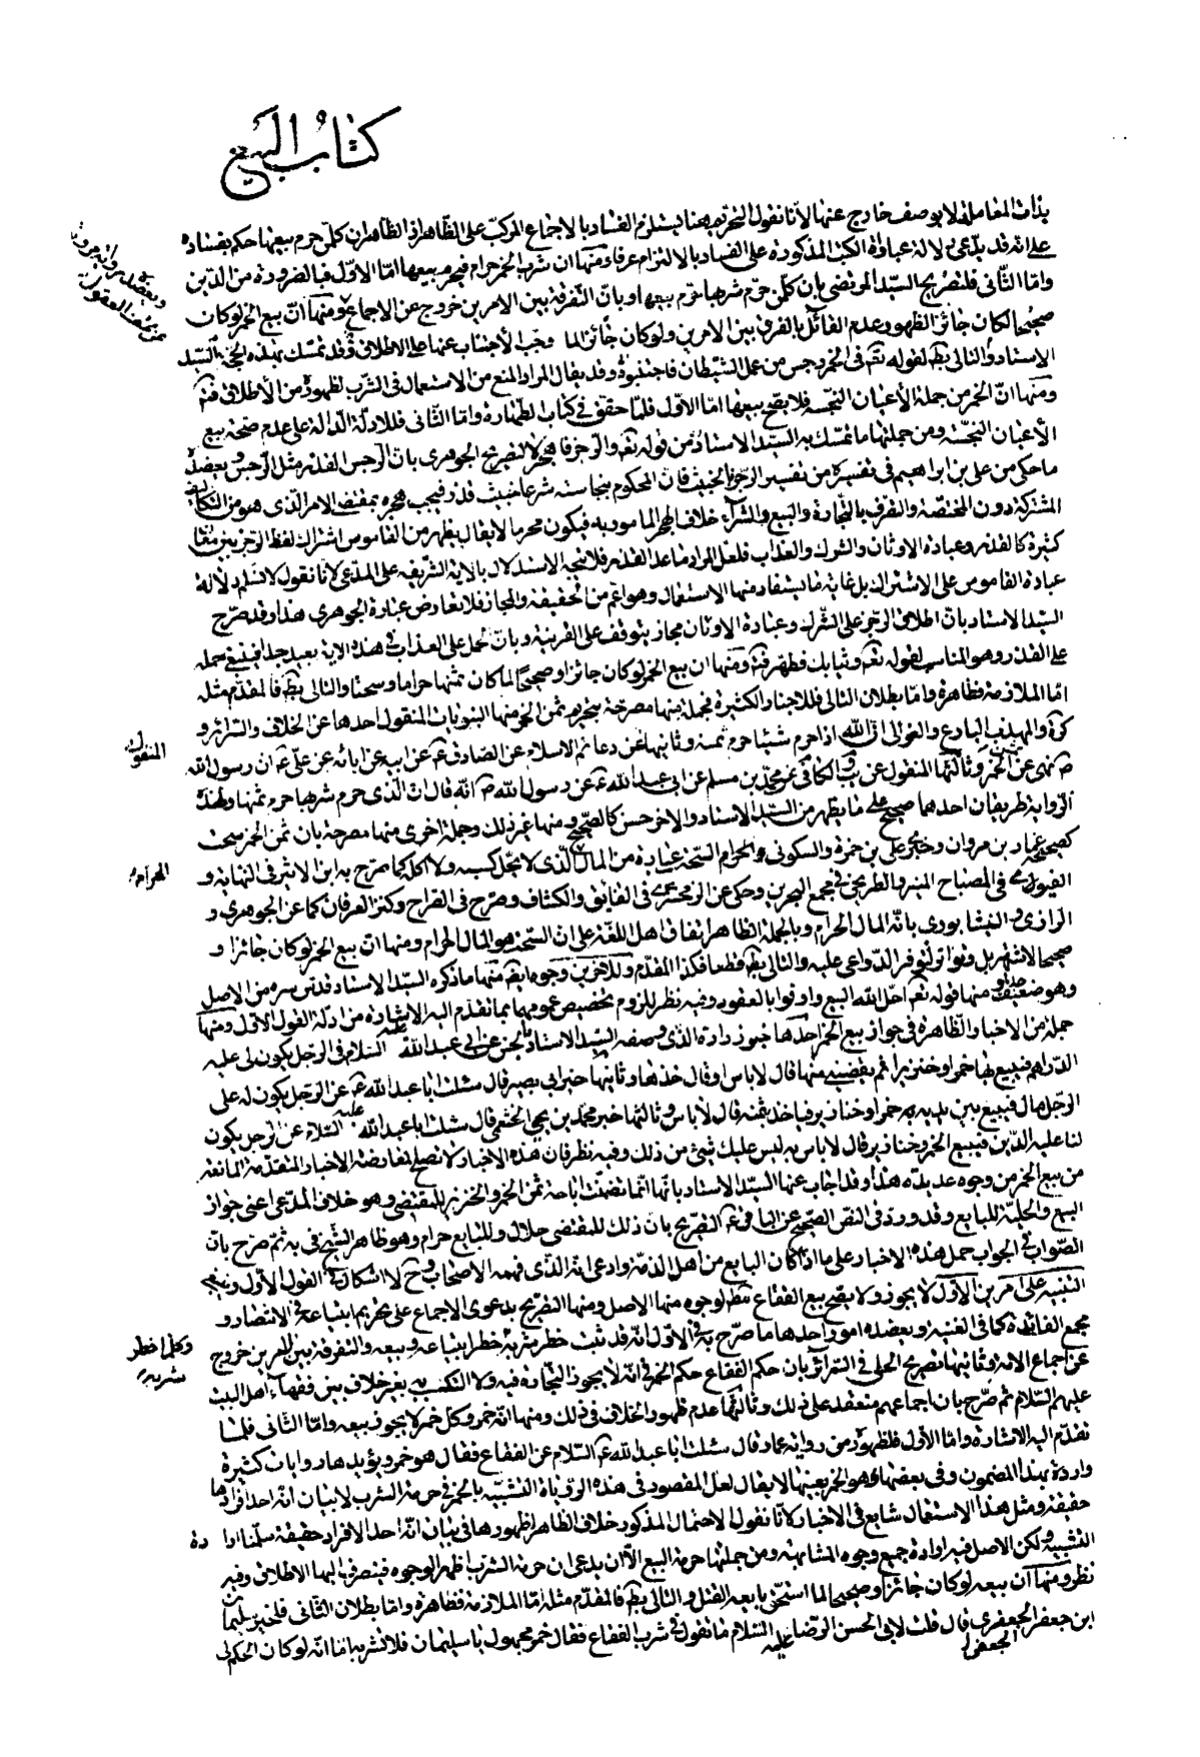 كتاب البيع
بذات المعاملة لا بوصف خارج عنها لأنا نقول التحريم هنا يستلزم الفساد بالاجماع المركب على الظاهر اذ الظاهر ان كل من حرم بيعها حكم بفساده
على انه قد يدعى دلالة عبارة الكتب المذكورة على الفساد بالالتزام عرفا ومنها ان شرب الخمر حرام فيحرم بيعها امّا الاول فبالضرورة من الدين
وامّا الثانى فلتصريح السيّد المرتضى بان كل من حرّم شربها حرّم بيعها وبان التفرقة بين الامرين خروج عن الاجماع ومنها انّ بيع الخمر لو كان
صحيحا لكان جائزا لظهور عدم القائل بالفرق بين الامرين ولو كان جائزا لما وجب الاجتناب عنها على الاطلاق وقد تمسك بهذه الحجة السيّد
الاستاد والتالى بط لقوله تعم فى الخمر رجس من عمل الشيطان فاجتنبوه وقد يقال المراد المنع من الاستعمال فى الشرب لظهوره من الاطلاق فتم
ومنها انّ الخمر من جملة الأعيان النجسة فلا يصح بيعها امّا الاول فلما حقق فى كتاب الطهارة وامّا الثانى فللادلة الدالة على عدم صحة بيع
الأعيان النجسة ومن جملتها ما تمسك به السيّد الاستاد من قوله تعم والرجز فاهجر لتصريح الجوهرى بان الرجس القذر مثل الرجز ويعضده
ما حكى من على بن ابراهيم فى تفسيره من تفسير الرجز بالخبيث فان المحكوم بنجاسته شرعا خبيث قذر فيجب هجره بمقتضى الامر الذى هو من التكاليف
المشتركة دون المختصة والتصرف بالتجارة والبيع والشراء خلاف الهجر المأمور به فيكون محرما لا يقال يظهر من القاموس اشتراك لفظ الرجز بين معان
كثيرة كالقذر وعبادة الاوثان والشرك والعذاب فلعل المراد ما عدا القذر فلا يتجه الاستدلال بالاية الشريفة على المدعى لانا نقول لا نسلم دلالة
عبارة القاموس على الاشتراك بل غاية ما يستفاد منها الاستعمال وهو اعم من الحقيقة والمجاز فلا تعارض عبارة الجوهرى هذا وقد صرّح
السيّد الاستاد بان اطلاق الرجز على الشرك وعبادة الاوثان مجاز يتوقف على القرينة وبان الحمل على العذاب فى هذه الاية بعيد جدا فينبغى حمله
على القذر وهو المناسب لقوله تعم وثيابك فطهر فتم ومنها ان بيع الخمر لو كان جائزا وصحيحا لما كان ثمنها حراما وسحتا والتالى بط فالمقدم مثله
امّا الملازمة فظاهرة وامّا بطلان التالى فللاخبار الكثيرة فجملة منها مصرحة بتحريم ثمن الخمر منها النبويات المنقول احدها عن الخلاف والسرائر و
كرة والمهذب البارع والغوالى ان الله اذا حرم شيئا حرم ثمنه وثانيها عن دعائم الاسلام عن الصادق عم عن ابيه عن ابائه عن على عم ان رسول الله
ص نهى عن الخمر وثالثها المنقول عن يب والكافى عن محمد بن مسلم عن ابى عبد الله عم عن رسول الله ص انه قال ان الذى حرم شربها حرم ثمنها ولهذه
الرواية طريقان احدهما صحيح على ما يظهر من السيّد الاستاد والاخر حسن كالصحيح ومنها غير ذلك وجملة اخرى منها مصرحة بان ثمن الخمر سحت
كصحيحة عمار بن مروان وخبرى على بن حمزة والسكونى والحرام السحت عبارة من المال الذى لا يحل كسبه ولا اكله كما صرّح به ابن الاثير فى النهاية و
الفيومى فى المصباح المنير والطريحى فى مجمع البحرين وحكى عن الزمخشرى فى الفايق والكشاف وصرّح فى القراح وكنز العرفان كما عن الجوهرى و
الرازى والنيشابورى بانّه المال الحرام وبالجملة الظاهر اتفاق اهل اللغة على ان السحت هو المال الحرام ومنها ان بيع الخمر لو كان جائزا و
صحيحا لاشتهر بل وتواتر لتوفر الدواعى عليه والتالى بط قطعا فكذا المقدم وللاخرين وجوه ايضا منها ما ذكره السيّد الاستاد قدس سره من الاصل
وهو ضعيف جدا ومنها قوله تعم احل الله البيع واوفوا بالعقود وفيه نظر للزوم تخصيص عمومها بما تقدم اليه الاشارة من ادلة القول الاول ومنها
جملة من الاخبار الظاهرة فى جواز بيع الخمر احدها خبر زرارة الذى وصفه السيّد الاستاد بالحسن عن ابى عبد الله عليه السلام فى الرجل يكون لى عليه
الدراهم فيبيع بها خمرا وخنزيرا ثم يقضينى منها قال لا باس او قال خذها وثانيها خبر ابى بصير قال سئلت ابا عبد الله عم عن الرجل يكون له على
الرجل مال فيبيع بين يديه خمرا وخنازير فياخذ بثمنه قال لا باس وثالثها خبر محمد بن يحيى الخثعمى قال سئلت ابا عبد الله عليه السلام عن الرجل يكون
لنا عليه الدين فيبيع الخمر وخنازير قال لا باس به ليس عليك شىء من ذلك وفيه نظر فان هذه الاخبار لا تصلح لمعارضة الاخبار المتقدمة المانعة
من بيع الخمر من وجوه عديدة هذا وقد اجاب عنها السيّد الاستاد بانها انما تضمنت اباحة ثمن الخمر والخنزير للمقتضى وهو خلاف المدعى اعنى جواز
البيع والحلية للبايع وقد ورد فى النص الصحيح عن الباقر عم التصريح بان ذلك للمقتضى حلال وللبايع حرام وهو ظاهر الشيخ فى يه ثم صرّح بان
الصواب فى الجواب حمل هذه الاخبار على ما اذا كان البايع من اهل الذمة وادعى انه الذى فهمه الاصحاب وح لا اشكال فى القول الاول وينبغى
التنبيه على امرين الأول لا يجوز ولا يصح بيع الفقاع لوجوه منها الاصل ومنها التصريح بدعوى الاجماع على تحريم ابتياعه فى الانتصار و
مجمع الفائدة كما فى الغنية ويعضده امور احدها ما صرّح به فى الاول انه قد ثبت حظر شربه حظر ابتياعه وبيعه والتفرقة بين الامرين خروج
عن اجماع الامة وثانيها تصريح الحلى فى السرائر بان حكم الفقاع حكم الخمر فى انه لا يجوز التجارة فيه ولا التكسب به بغير خلاف بين فقهاء اهل البيت
عليهم السلام ثم صرّح بان اجماعهم منعقد على ذلك وثالثها عدم ظهور الخلاف فى ذلك ومنها انه خمر وكل خمر لا يجوز بيعه وامّا الثانى فلما
تقدم اليه الاشارة وامّا الأول فلظهوره من رواية عمار قال سئلت ابا عبد الله عم السلام عن الفقاع فقال هو خمر ويؤيدها روايات كثيرة
واردة بهذا المضمون وفى بعضها هو الخمر بعينها لا يقال لعل المقصود فى هذه الروايات التشبيه بالخمر فى حرمة الشرب لا بيان انه احد افرادها
حقيقة ومثل هذا الاستعمال شايع فى الاخبار لانا نقول الاحتمال المذكور خلاف الظاهر لظهورها فى بيان انه احد الافراد حقيقة سلمنا ارادة
التشبيه ولكن الاصل فيه ارادة جميع وجوه المشابهة ومن جملتها حرمة البيع الا ان يدعى ان حرمة الشرب اظهر الوجوه فينصرف اليها الاطلاق وفيه
نظر ومنها ان بيعه لو كان جائزا وصحيحا لما استحق بايعه القتل والتالى بط فالمقدم مثله امّا الملازمة فظاهرة وامّا بطلان الثانى فلخبر سليمان
ابن جعفر الجعفرى قال قلت لابى الحسن الرضا عليه السلام ما تقول فى شرب الفقاع فقال خمر مجهول يا سليمان فلا تشربه اما انه لو كان الحكم لى
المنقول
الحرام
وكلما حظر
شربه
الجعفرى